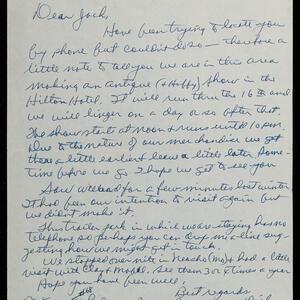 Dear Jack,
Have been trying to locate you
by phone but couldn't do so — therefore a
little note to tell you we are in this area
making an antique (& Hobby) show in the
Hilton Hotel. It will run thru the 16th and
we will linger on a day or so after that.
The show starts at noon & runs until 10 pm.
Due to the nature of our merchandise we get
there a little earlier & leave a little later. Some-
time before we go I hope we get to see you.
Saw Weebad for a few minutes last winter
It had been our intention to visit again but
we didn't make it.
This trailer park in which we are staying has no
telephone so perhaps you can drop me a line sug-
gesting how we might get in touch.
We stopped over nite in Neosho (Mo) & had a little
visit with Clay & Mabel. See them 3 or 4 times a year.
Hope you have been well,
Best regards